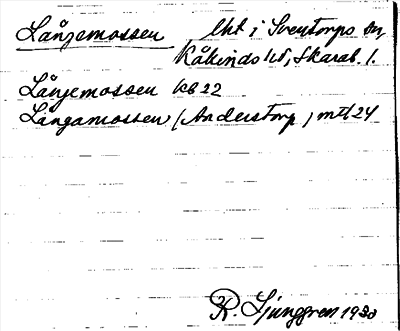 Långemossen Lht i Sventorps sn
Kåkinds hd, Skarab. l.
Långemossen KB 22
Långamossen (Anderstorp) mtl 24
R. Ljunggren 1930